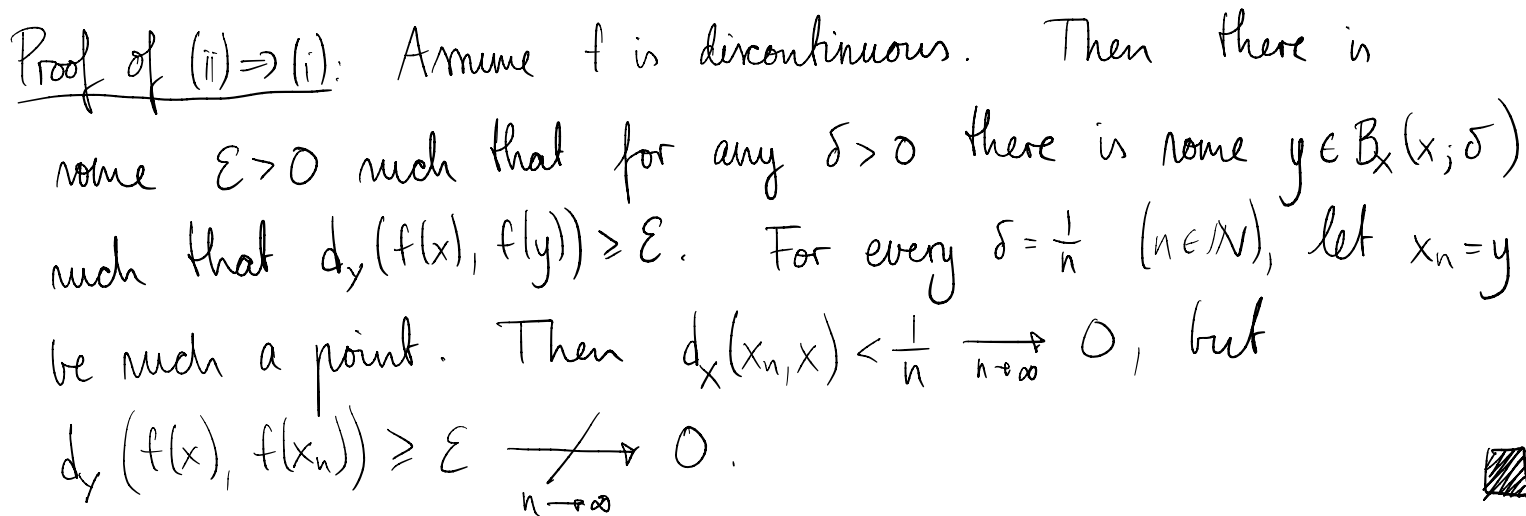 Proof of (ii) ⇒ (i): Assume f is discontinuous. Then there is
some ε > 0 such that for any δ > 0 there is some y ∈ B_X(x; δ)
such that d_Y(f(x), f(y)) ≥ ε. For every δ = 1/n (n ∈ ℕ), let x_n = y
be such a point. Then d_X(x_n, x) < 1/n →_{n→∞} 0, but
d_Y(f(x), f(x_n)) ≥ ε ↛_{n→∞} 0.